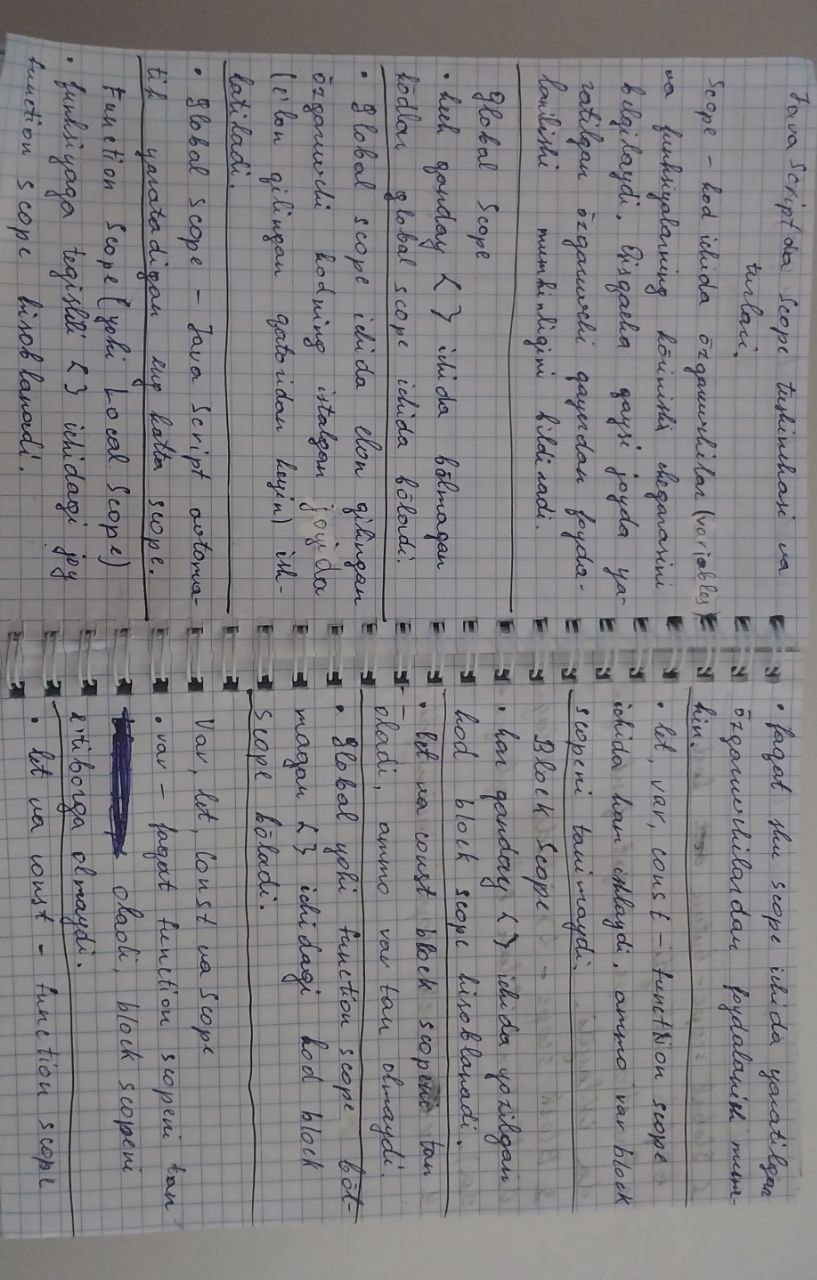 Java Scriptda Scope tushunchasi va
turlari.
Scope - kod ichida özgaruvchilar (variables)
va funksiyalarning körinishi chegarasini
belgilaydi. Qisqacha qaysi joyda ya-
ratilgan özgaruvchi qayerdan foyda-
lanilishi mumkinligini bildiradi.
Global Scope
• hech qanday { } ichida bölmagan
kodlar global scope ichida böladi.
• global scope ichida elon qilingan
özgaruvchi kodning istalgan joyida
(e'lon qilingan qatoridan keyin) ish-
latiladi.
• global scope - Java Script avtoma-
tik yaratadigan eng katta scope.
Function Scope (yoki Local Scope)
• funksiyaga tegishli { } ichidagi joy
function scope hisoblanadi.
• faqat shu scope ichida yaratilgan
özgaruvchilardan foydalanish mum-
kin.
• let, var, const - function scope
ichida ham ishlaydi, ammo var block
scopeni tanimaydi.
Block Scope
• har qanday { } ichida yozilgan
kod block scope hisoblanadi.
• let va const block scopeni tan
oladi, ammo var tan olmaydi.
• global yoki function scope böl-
magan { } ichidagi kod block
scope böladi.
Var, let, const va Scope
• var - faqat function scopeni tan
oladi, block scopeni
e'tiborga olmaydi.
• let va const - function scope